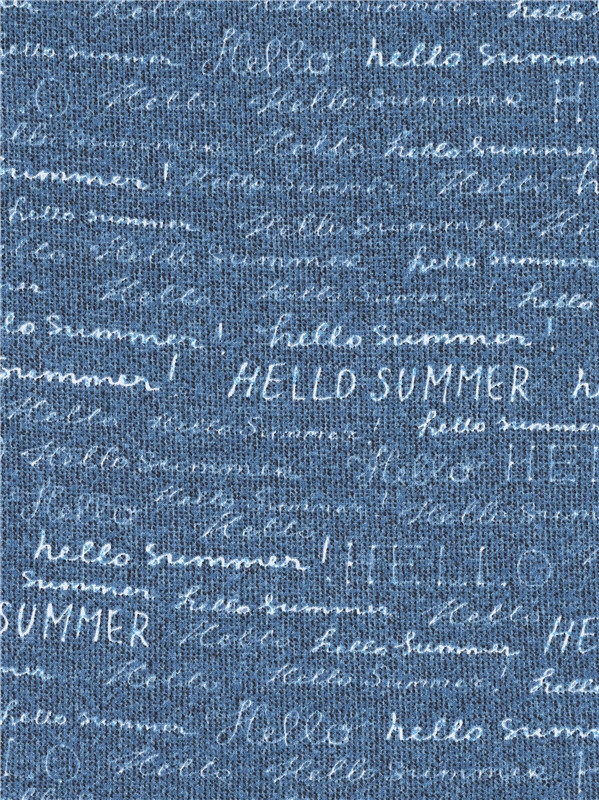 hello
hello summer Hello hello summ
O Hello Hello Summer H
llo summer Hello hello summer
summer! Hello Summer Hello h
hello summer Hello Summer He
llo Hello Summer hello summer
er Hello Hello Summer! hello
lo summer! hello summer!
summer! HELLO SUMMER h
Hello Hello Summer! hello summer
Hello Summer Hello HEL
Hello Hello Summer! Hello Sum
Hello
hello summer! HELLO
summer hello summer Hello
SUMMER Hello hello summer HE
mer Hello! Hello Summer! hello
hello summer Hello hello summ
! O Hello Hello Summer H